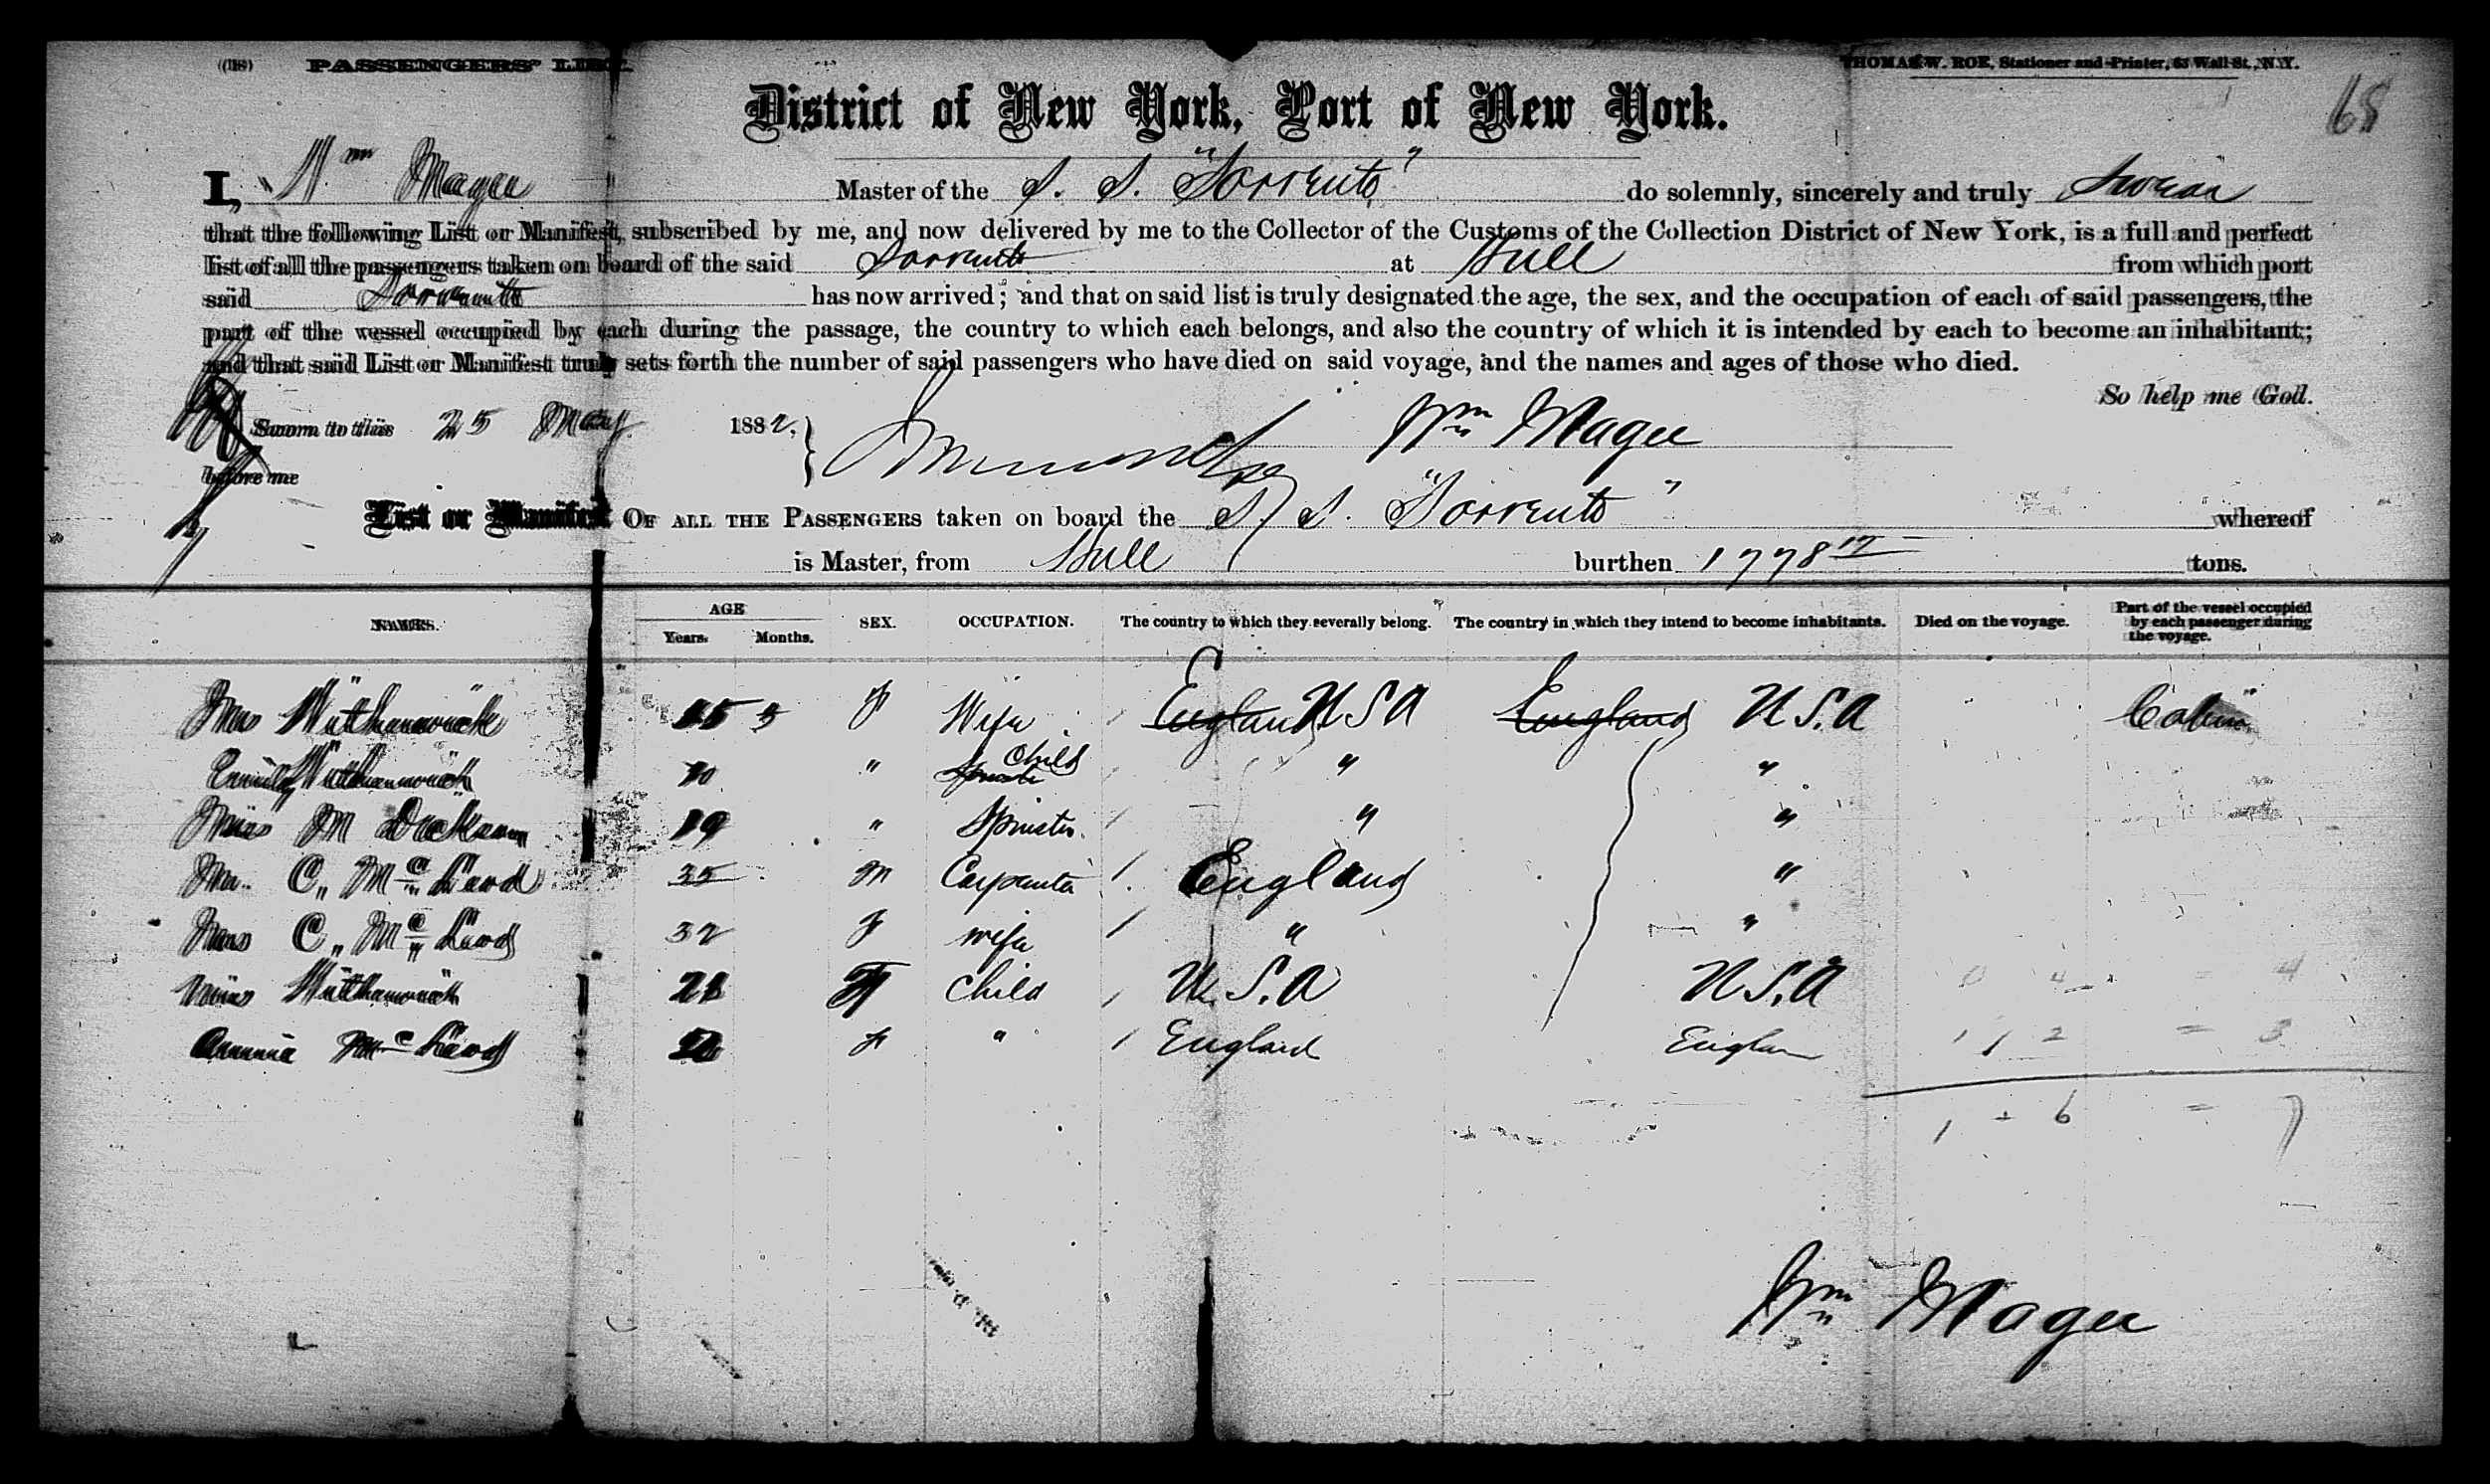 (118) PASSENGERS' LIST. THOMAS W. ROE, Stationer and Printer, 63 Wall St., N.Y.
68
District of New York, Port of New York.
I, Wm Magee Master of the S. S. "Sorrento" do solemnly, sincerely and truly swear
that the following List or Manifest, subscribed by me, and now delivered by me to the Collector of the Customs of the Collection District of New York, is a full and perfect
list of all the passengers taken on board of the said Sorrento at Hull from which port
said Sorrento has now arrived; and that on said list is truly designated the age, the sex, and the occupation of each of said passengers, the
part of the vessel occupied by each during the passage, the country to which each belongs, and also the country of which it is intended by each to become an inhabitant;
and that said List or Manifest truly sets forth the number of said passengers who have died on said voyage, and the names and ages of those who died.
So help me God.
Sworn to this 25 May 1882, Wm Magee
before me
List or Manifest OF ALL THE PASSENGERS taken on board the S. S. "Sorrento" whereof
is Master, from Hull burthen 1778 12 tons.
NAMES. AGE Years. Months. SEX. OCCUPATION. The country to which they severally belong. The country in which they intend to become inhabitants. Died on the voyage. Part of the vessel occupied by each passenger during the voyage.
Mrs F Wife England U S A England U S A Cabin
Emily " Child " "
Miss M Dickson 19 " Spinster " "
Mr. C,, Mc Leod 35 M Carpenter England "
Mrs C,, Mc Leod 32 F wife " "
Miss F Child U. S. A U S. A 4 = 4
Annie Mc Leod F " England Englan 1 2 = 3
1 + 6 = 7
Wm Magee